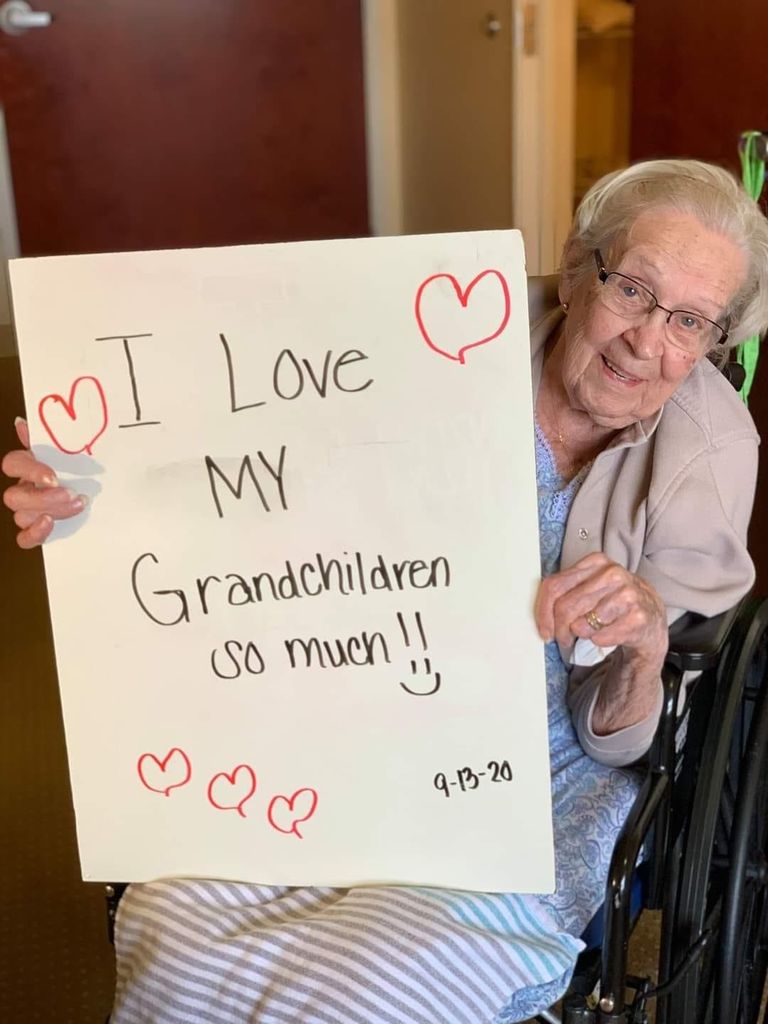 I Love
MY
Grandchildren
so much!!
9-13-20